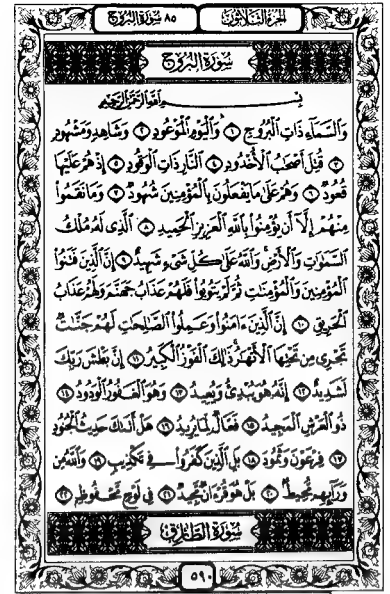 الجزء الثلاثون ٨٥ سورة البروج
سورة البروج
بسم الله الرحمن الرحيم
وَالسَّمَاءِ ذَاتِ الْبُرُوجِ ١ وَالْيَوْمِ الْمَوْعُودِ ٢ وَشَاهِدٍ وَمَشْهُودٍ
٣ قُتِلَ أَصْحَٰبُ الْأُخْدُودِ ٤ النَّارِ ذَاتِ الْوَقُودِ ٥ إِذْ هُمْ عَلَيْهَا
قُعُودٌ ٦ وَهُمْ عَلَىٰ مَا يَفْعَلُونَ بِالْمُؤْمِنِينَ شُهُودٌ ٧ وَمَا نَقَمُوا
مِنْهُمْ إِلَّا أَن يُؤْمِنُوا بِاللَّهِ الْعَزِيزِ الْحَمِيدِ ٨ الَّذِي لَهُ مُلْكُ
السَّمَٰوَٰتِ وَالْأَرْضِ وَاللَّهُ عَلَىٰ كُلِّ شَيْءٍ شَهِيدٌ ٩ إِنَّ الَّذِينَ فَتَنُوا
الْمُؤْمِنِينَ وَالْمُؤْمِنَٰتِ ثُمَّ لَمْ يَتُوبُوا فَلَهُمْ عَذَابُ جَهَنَّمَ وَلَهُمْ عَذَابُ
الْحَرِيقِ ١٠ إِنَّ الَّذِينَ ءَامَنُوا وَعَمِلُوا الصَّٰلِحَٰتِ لَهُمْ جَنَّٰتٌ
تَجْرِي مِن تَحْتِهَا الْأَنْهَٰرُ ذَٰلِكَ الْفَوْزُ الْكَبِيرُ ١١ إِنَّ بَطْشَ رَبِّكَ
لَشَدِيدٌ ١٢ إِنَّهُ هُوَ يُبْدِئُ وَيُعِيدُ ١٣ وَهُوَ الْغَفُورُ الْوَدُودُ ١٤
ذُو الْعَرْشِ الْمَجِيدُ ١٥ فَعَّالٌ لِّمَا يُرِيدُ ١٦ هَلْ أَتَىٰكَ حَدِيثُ الْجُنُودِ
١٧ فِرْعَوْنَ وَثَمُودَ ١٨ بَلِ الَّذِينَ كَفَرُوا فِي تَكْذِيبٍ ١٩ وَاللَّهُ مِن
وَرَائِهِم مُّحِيطٌ ٢٠ بَلْ هُوَ قُرْءَانٌ مَّجِيدٌ ٢١ فِي لَوْحٍ مَّحْفُوظٍ ٢٢
سورة الطارق
٥٩٠